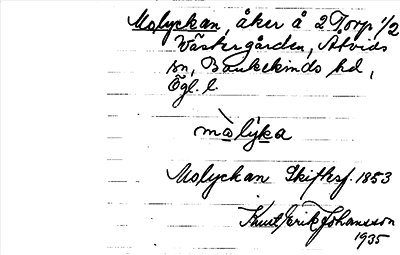 Molyckan, åker å 2 Torp 1/2
Västergården, Åtvids
sn, Bankekinds hd,
Ögl. l.
mo̲lỳk̲a
Molyckan Skiftesf. 1853
Knut Erik Johansson
1935